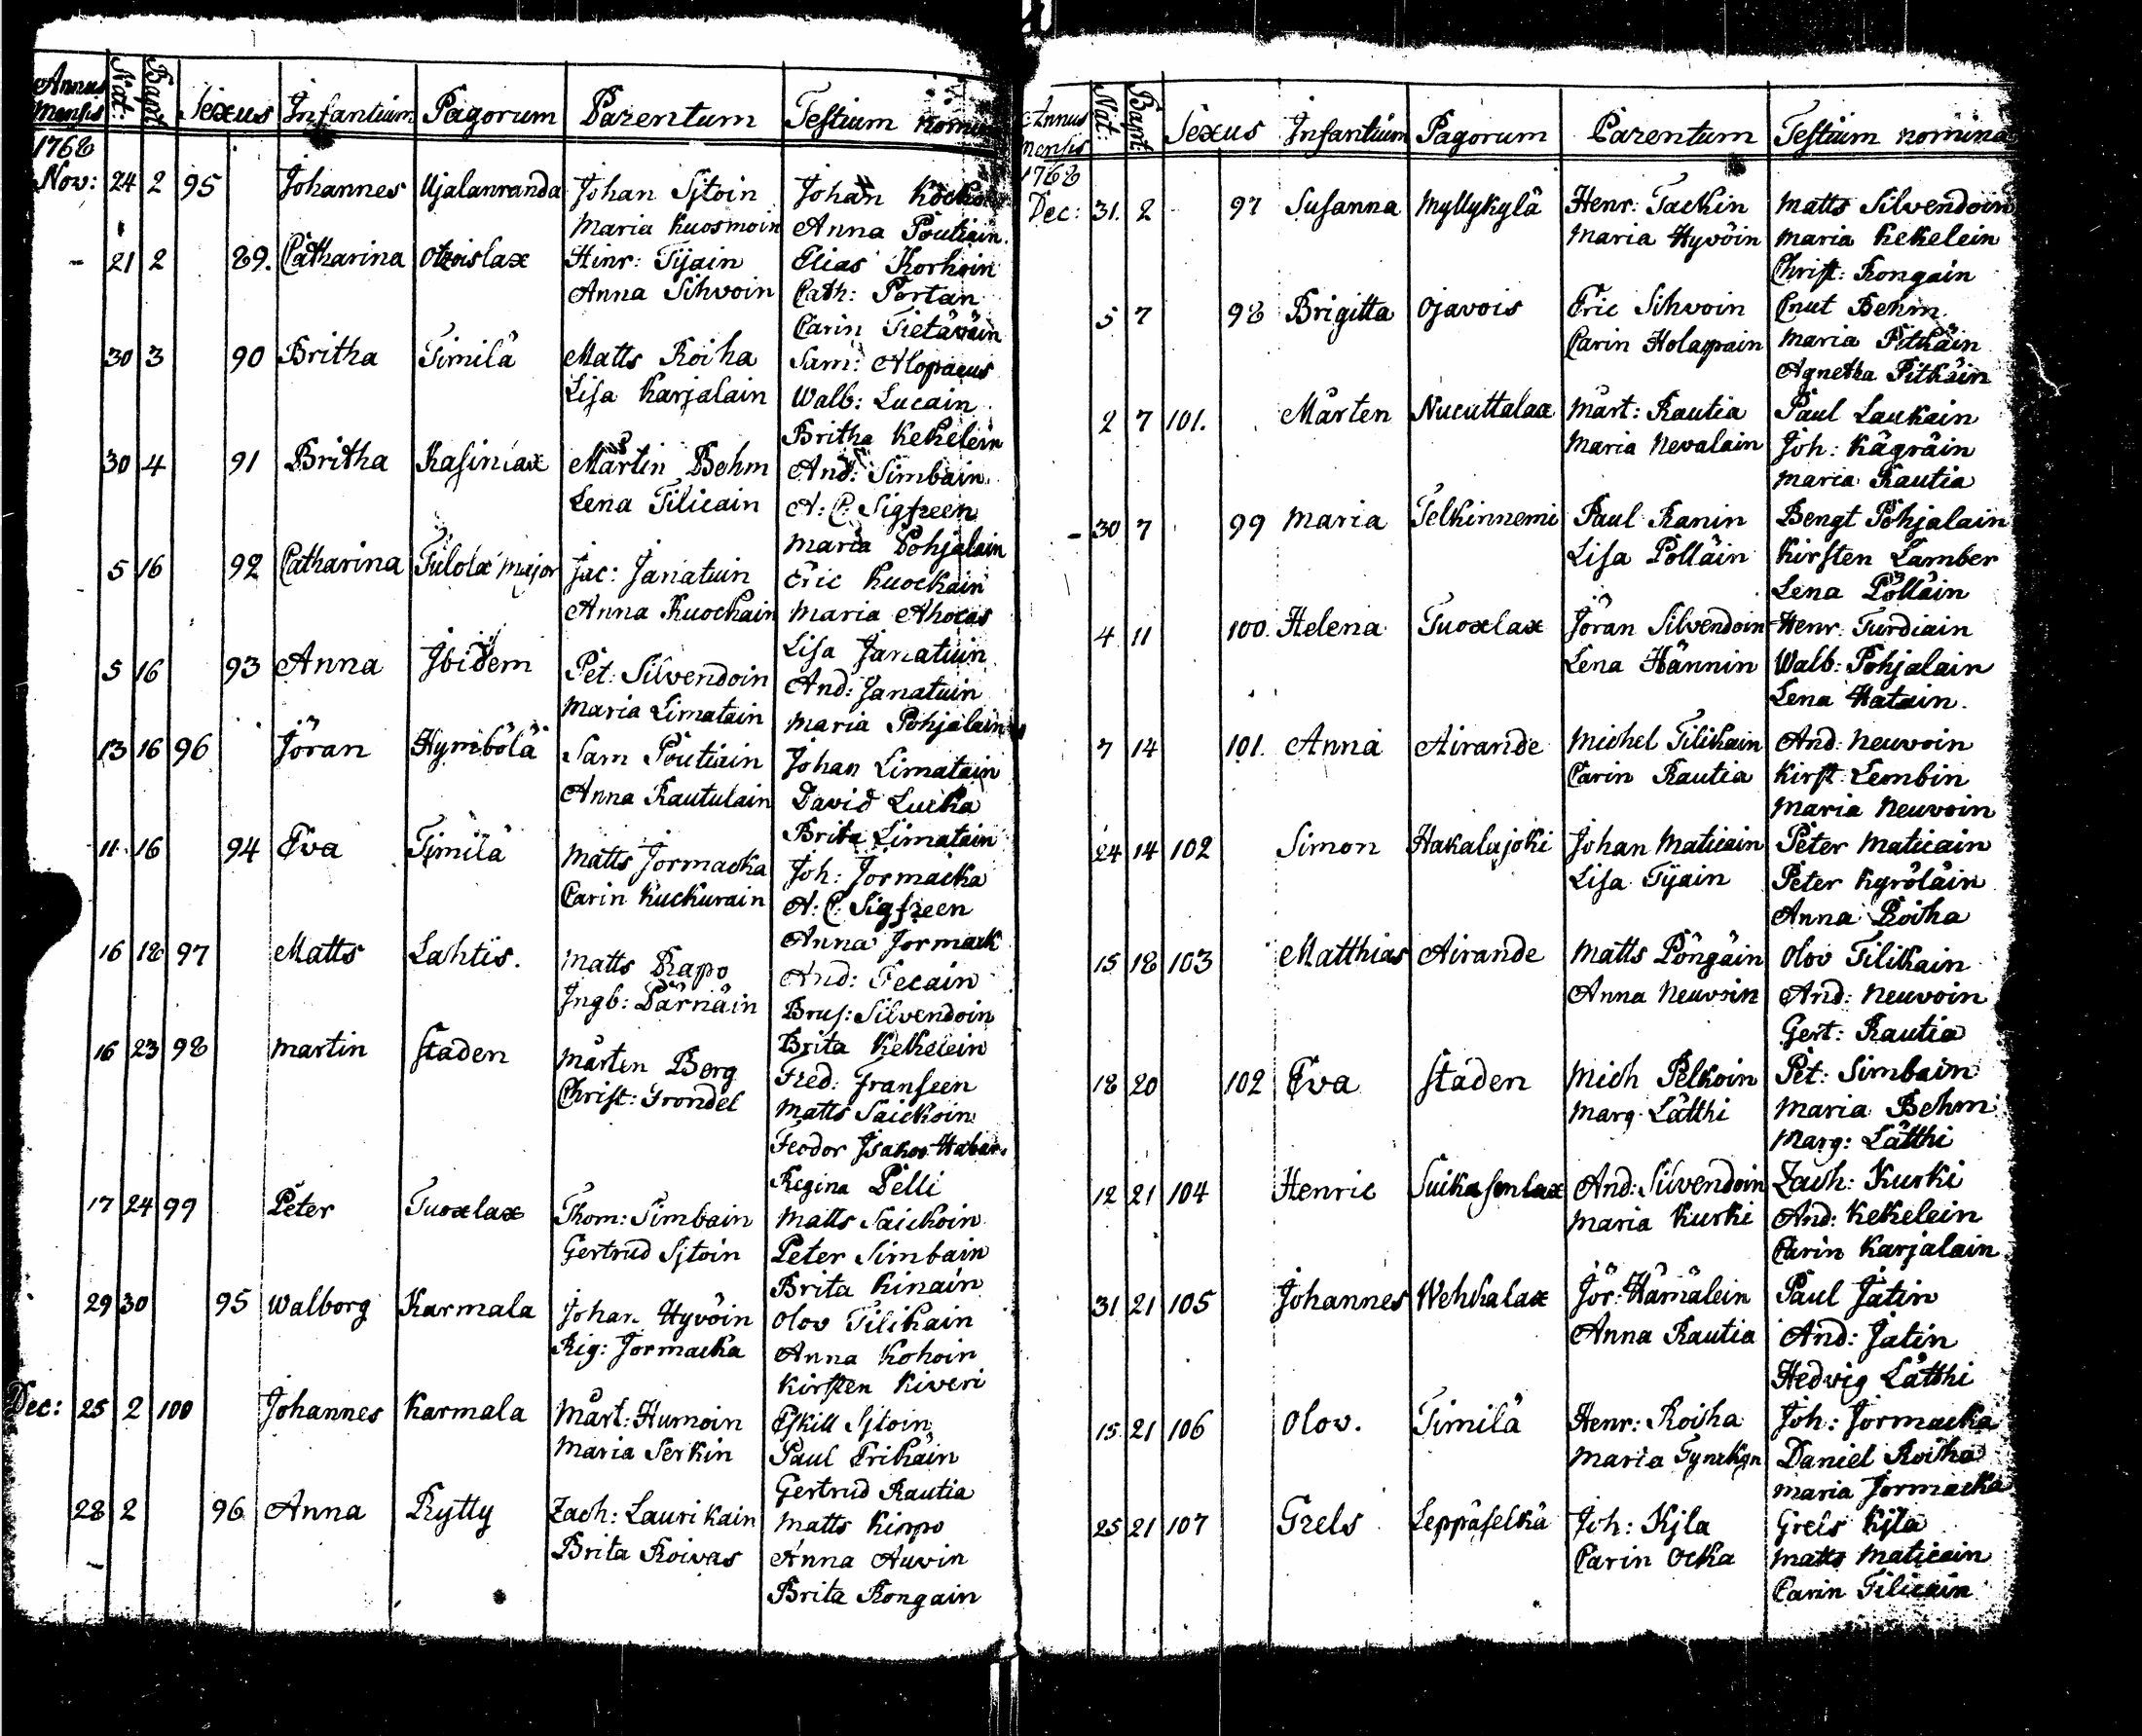 Annus Mensis Nat: Bapt: Sexus Infantium Pagorum Parentum Testium nomina
1768
Nov: 24 2 95 Johannes Ujalanranda Johan Sjtoin Johan Kocko
Maria Kuosmoin Anna Poutiain
- 21 2 89. Catharina Otzoislax Hinr: Tijain Elias Korhoin
Anna Sihvoin Cath: Portan
Carin Tietäväin
30 3 90 Britha Timilä Matts Roiha Sam: Alopaeus
Lisa Karjalain Walb: Lucain
Britha Kekelein
30 4 91 Britha Rasinlax Mårtin Behm And: Simbain
Lena Tilicain A: C: Sigfreen
Maria Pohjalain
5 16 92 Catharina Tulola major Jac: Janatuin Eric Kuockain
Anna Kuochain Maria Ahocas
Lisa Janatuin
5 16 93 Anna Jbidem Pet: Silvendoin And: Janatuin
Maria Limatain Maria Pohjalain
13 16 96 Jöran Hymbölä Sam Poutiain Johan Limatain
Anna Rautulain David Lucka
Brita Limatain
11 16 94 Eva Timilä Matts Jormacka Joh: Jormacka
Carin Kuckurain A: C: Sigfreen
Anna Jormack
16 18 97 Matts Lahtis. Matts Rapo And: Tecain
Jngb: Pärnäin Brus: Silvendoin
Brita Kekelein
16 23 98 Martin Staden Mårten Berg Fred: Franseen
Christ: Grondel Matts Saickoin
Feodor Jsakov
Regina Pelli
17 24 99 Peter Tuoxlax Thom: Simbain Matts Saickoin
Gertrud Sjtoin Peter Simbain
Brita Kinain
29 30 95 Walborg Karmala Johan Hyvöin Olov Tilikain
Rig: Jormacka Anna Kohoin
Kirsten Kiveri
Dec: 25 2 100 Johannes Karmala Mårt: Humoin Eskill Sjtoin
Maria Serkin Paul Erikäin
Gertrud Rautia
28 2 96 Anna Rytty Zach: Laurikain Matts Kirpo
Brita Roivas Anna Auvin
Brita Rongain
Annus Mensis Nat: Bapt: Sexus Infantium Pagorum Parentum Testium nomina
1768
Dec: 31. 2 97 Susanna Myllykylä Henr: Tackin Matts Silvendoin
Maria Hyvöin Maria Kekelein
Christ: Rongain
5 7 98 Brigitta Ojavois Eric Sihvoin Cnut Behm
Carin Holapain Maria Pitkäin
Agnetha Pitkäin
2 7 101. Mårten Nucuttalax Mårt: Rautia Paul Laukain
Maria Nevalain Joh: Kägräin
Maria Rautia
- 30 7 99 Maria Telkinnemi Paul Ranin Bengt Pohjalain
Lisa Pölläin Kirsten Lamber
Lena Pölläin
4 11 100. Helena Tuoxlax Jöran Silvendoin Henr: Turdiain
Lena Hännin Walb: Pohjalain
Lena Hatain.
7 14 101. Anna Airande Michel Tilikain And: Neuvoin
Carin Rautia Kirst: Lembin
Maria Neuvoin
24 14 102 Simon Hakalujoki Johan Maticain Peter Maticain
Lisa Tijain Peter Kyröläin
Anna Roiha
15 18 103 Matthias Airande Matts Pöngäin Olov Tilikain
Anna Neuvoin And: Neuvoin
Gert: Rautia
18 20 102 Eva Staden Mich Pelkoin Pet: Simbain
Marg. Lätthi Maria Behm
Marg: Lätthi
12 21 104 Henric Suikasenlax And: Silvendoin Zach: Kurki
Maria Kurki And: Kekelein
Carin Karjalain
31 21 105 Johannes Wehkalax Jör: Hämälein Paul Jatin
Anna Rautia And: Jatin
Hedvig Lätthi
15 21 106 Olov. Timilä Henr: Roiha Joh: Jormacka
Maria Daniel Roiha
Maria Jormacka
25 21 107 Grels Leppäselkä Joh: Kjla Grels Kjla
Carin Ocka Matts Maticain
Carin Tilicain